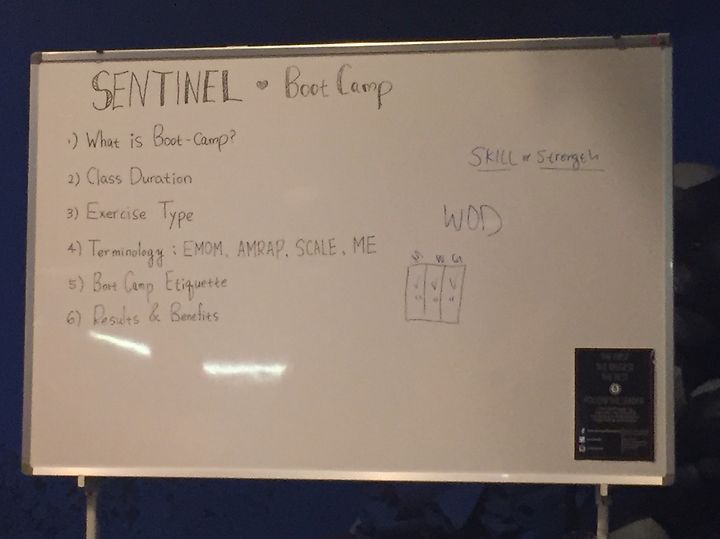 SENTINEL • Boot Camp
1) What is Boot-Camp?
2) Class Duration
3) Exercise Type
4) Terminology : EMOM, AMRAP, SCALE, ME
5) Boot Camp Etiquette
6) Results & Benefits
SKILL or Strength
WOD